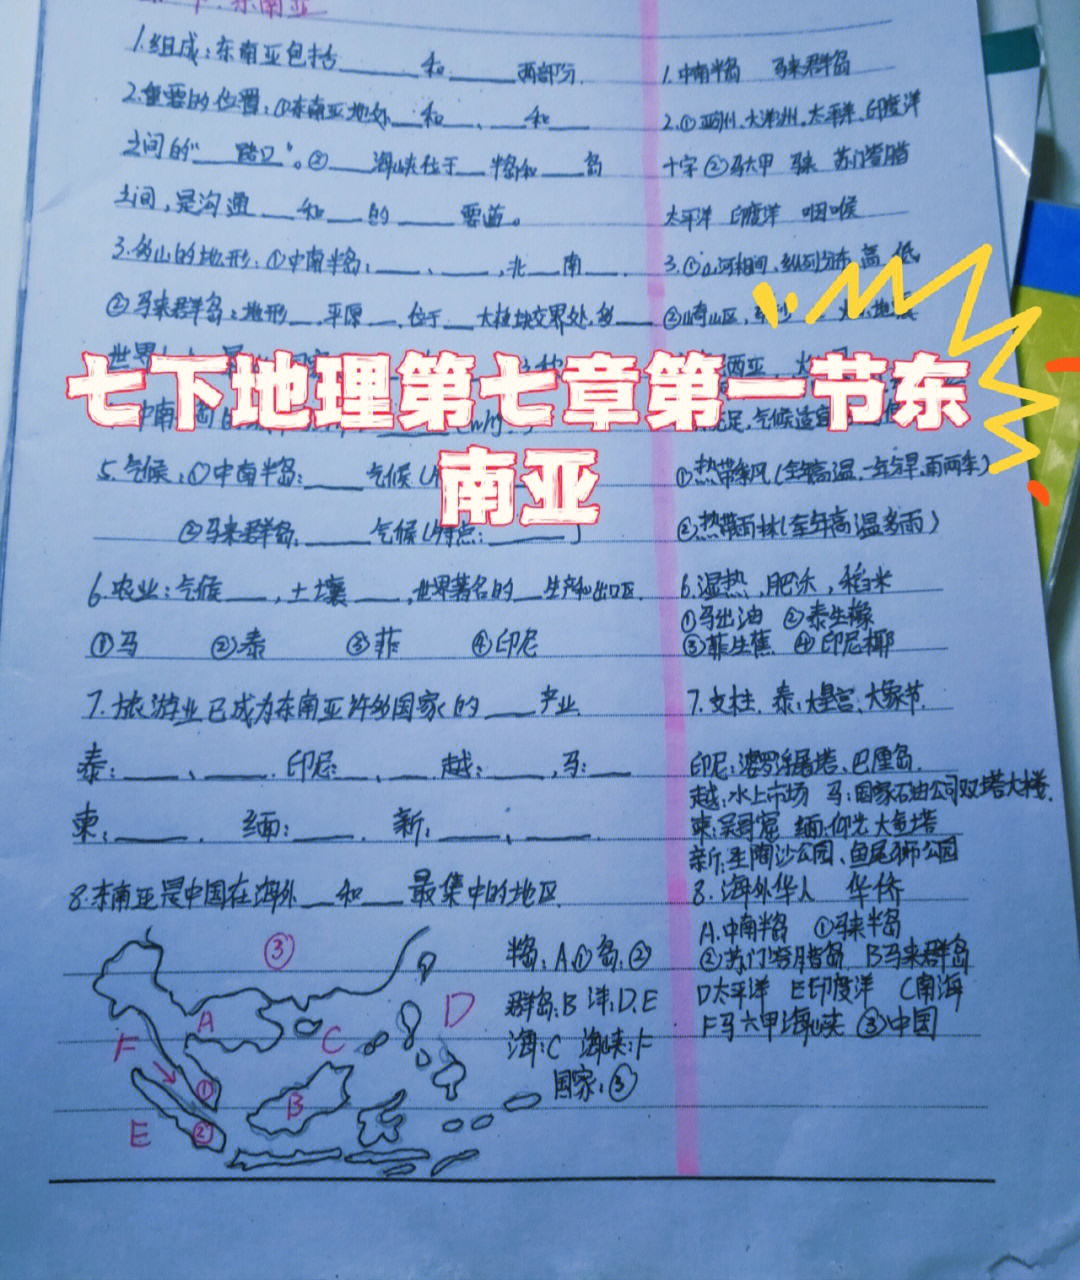 东南亚
1.组成:东南亚包括____和____两部分. 1.中南半岛 马来群岛
2.重要的位置:①东南亚地处__和__、__和__ 2.①亚洲、大洋洲、太平洋、印度洋
之间的"__路口"。②__海峡位于__半岛和__岛 十字 ②马六甲 马来 苏门答腊
之间,是沟通__和__的__要道。 太平洋 印度洋 咽喉
3.多山的地形:①中南半岛:__、__,北__南__. 3.①山河相间、纵列分布 高 低
②马来群岛:地形__平原__,位于__大板块交界处,多__ ②崎山区,
七下地理第七章第一节东
南亚
充足,气候适宜
5.气候:①中南半岛:____气候( ①热带季风(全年高温,一年分旱、雨两季)
②马来群岛:____气候(特点:____) ②热带雨林(全年高温多雨)
6.农业:气候__,土壤__,世界著名的__生产和出口区. 6.湿热、肥沃、稻米
①马 ②泰 ③菲 ④印尼 ①马出油 ②泰生橡
③菲生蕉 ④印尼椰
7.旅游业已成为东南亚许多国家的__产业 7.支柱. 泰:大皇宫、大象节.
泰:__、__. 印尼:__、__ 越:__,马:__ 印尼:婆罗浮屠塔、巴厘岛
越:水上市场 马:国家石油公司双塔大楼.
柬:____. 缅:____. 新:____、____ 柬:吴哥窟 缅:仰光大金塔
新:圣陶沙公园、鱼尾狮公园
8.东南亚是中国在海外__和__最集中的地区. 8.海外华人 华侨
A.中南半岛 ①马来半岛
③ 半岛:A、①岛:② ②苏门答腊岛 B马来群岛
A C D 群岛:B 洋:D、E D太平洋 E印度洋 C南海
F 海:C 海峡:F F马六甲海峡 ③中国
① B 国家:③
E ②